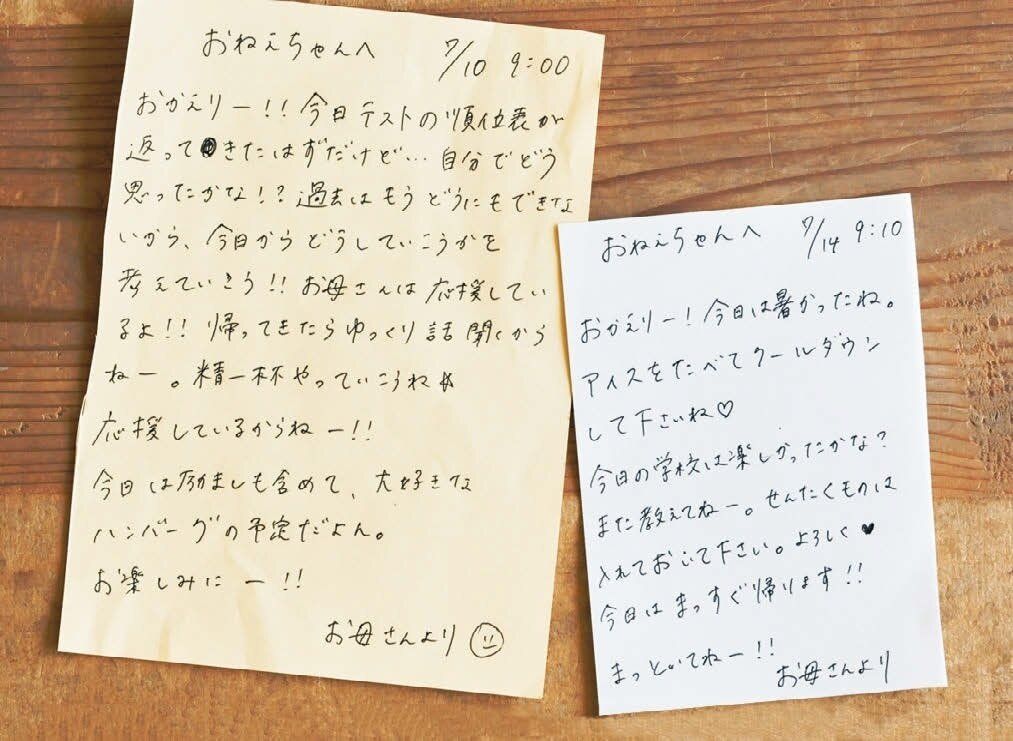 おねえちゃんへ 7/10 9:00
おかえりー!!今日テストの順位表が
返ってきたはずだけど…自分でどう
思ったかな!?過去はもうどうにもできな
いから、今日からどうしていこうかを
考えていこう!!お母さんは応援してい
るよ!!帰ってきたらゆっくり話聞くから
ねー。精一杯やっていこうね☆
応援しているからねー!!
今日は励ましも含めて、大好きな
ハンバーグの予定だよん。
お楽しみにー!!
お母さんより
おねえちゃんへ 7/14 9:10
おかえりー!今日は暑かったね。
アイスをたべてクールダウン
して下さいね♡
今日の学校は楽しかったかな?
また教えてねー。せんたくものは
入れておいて下さい。よろしく♥
今日はまっすぐ帰ります!!
まっといてねー!!
お母さんより